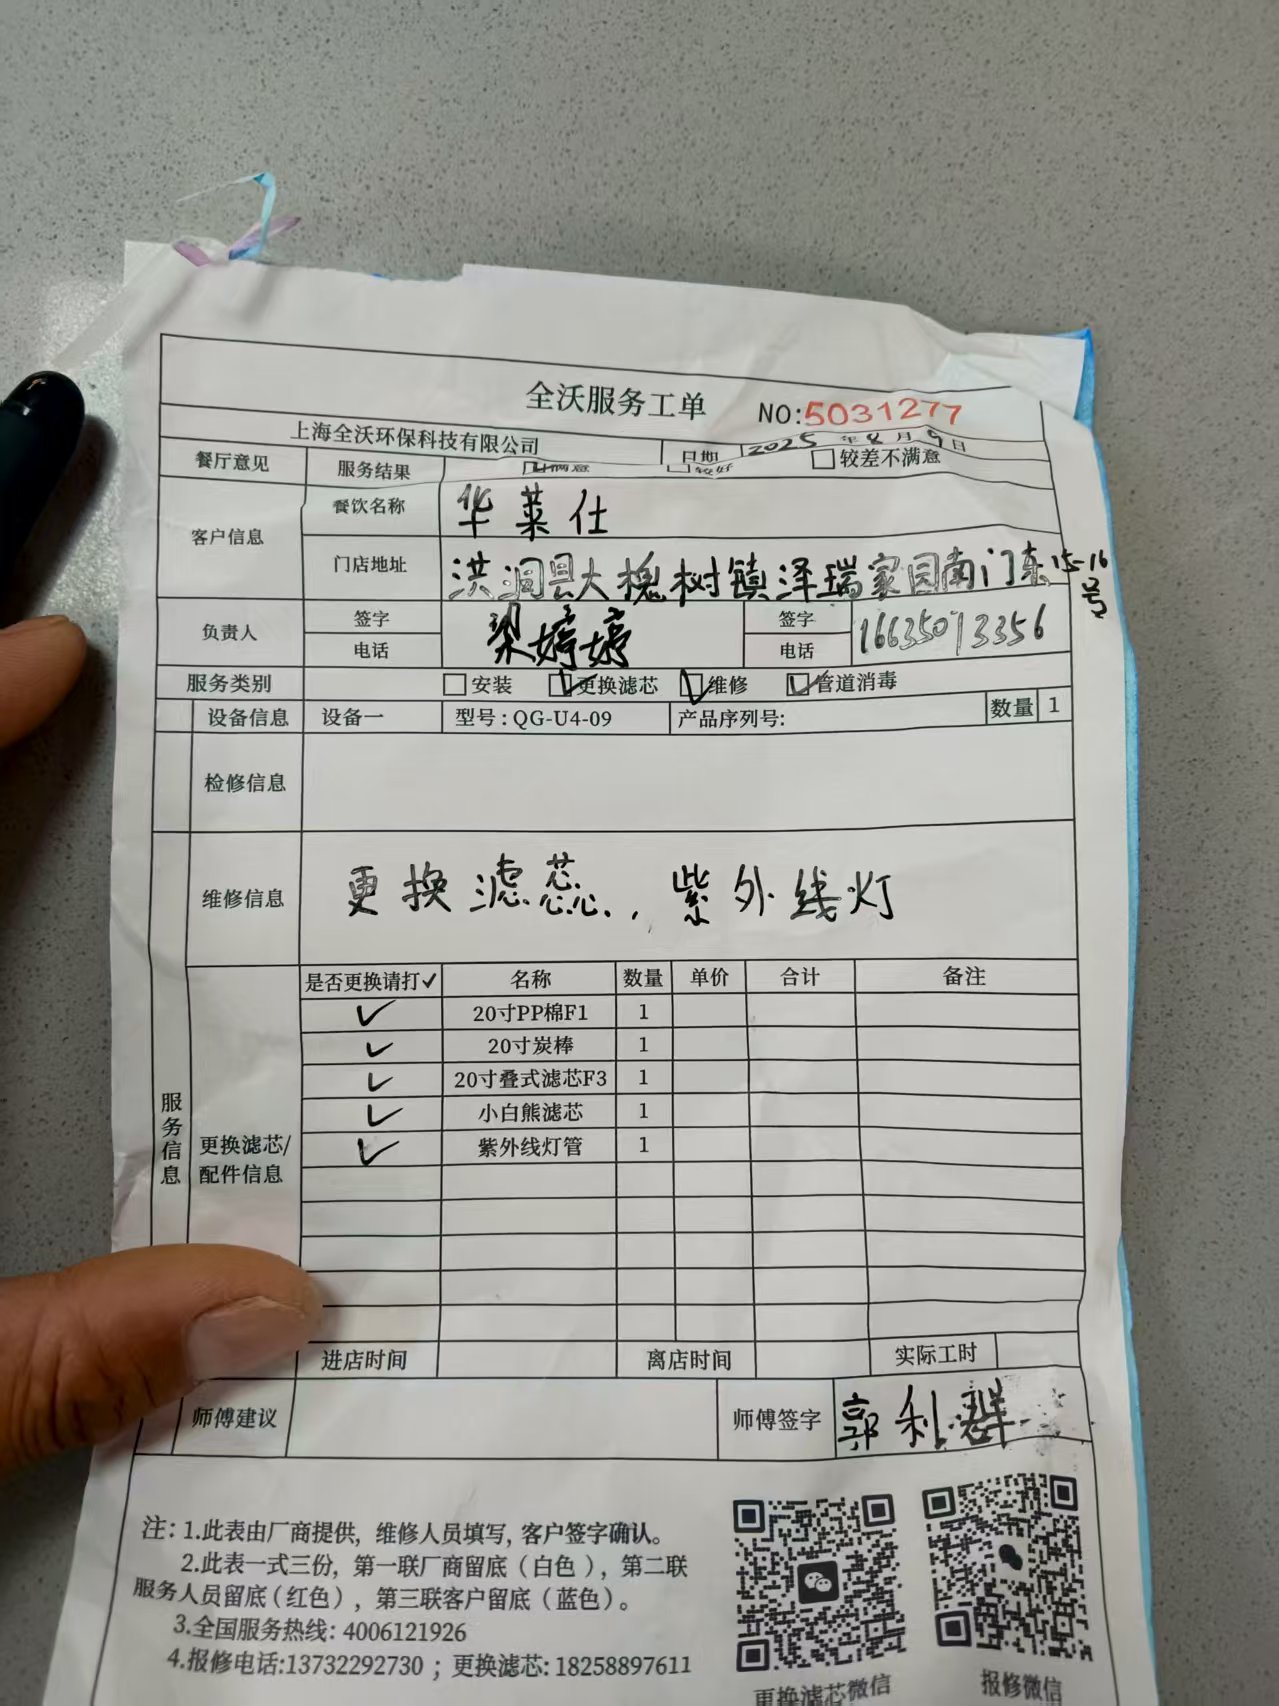 全沃服务工单 NO:5031277
上海全沃环保科技有限公司 日期 2025年8月9日
餐厅意见 服务结果 满意 较好 较差不满意
客户信息 餐饮名称 华莱仕
门店地址 洪洞县大槐树镇泽瑞家园南门东15-16号
负责人 签字 梁婷婷 签字
电话 电话 16635013356
服务类别 安装 更换滤芯 维修 管道消毒
设备信息 设备一 型号:QG-U4-09 产品序列号: 数量 1
检修信息
维修信息 更换滤芯,紫外线灯
服务信息
更换滤芯/配件信息
是否更换请打✓ 名称 数量 单价 合计 备注
✓ 20寸PP棉F1 1
✓ 20寸炭棒 1
✓ 20寸叠式滤芯F3 1
✓ 小白熊滤芯 1
✓ 紫外线灯管 1
进店时间 离店时间 实际工时
师傅建议 师傅签字 郭利群
注:1.此表由厂商提供,维修人员填写,客户签字确认。
2.此表一式三份,第一联厂商留底(白色),第二联
服务人员留底(红色),第三联客户留底(蓝色)。
3.全国服务热线:4006121926
4.报修电话:13732292730;更换滤芯:18258897611
更换滤芯微信 报修微信